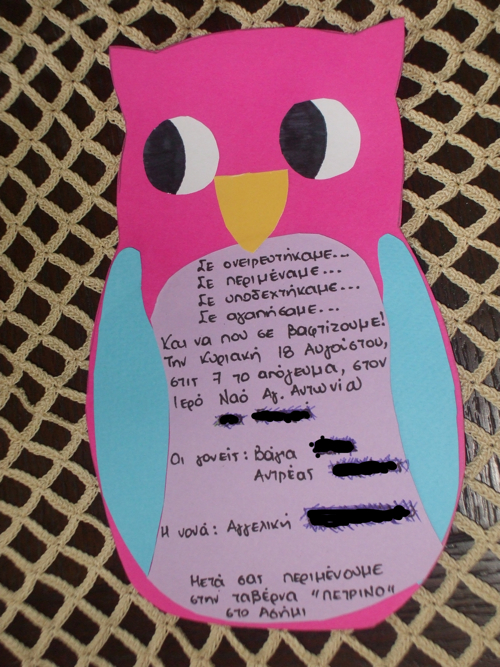 Σε ονειρευτήκαμε...
Σε περιμέναμε...
Σε υποδεχτήκαμε...
Σε αγαπήσαμε...
Και να που σε βαφτίζουμε!
Την Κυριακή 18 Αυγούστου,
στις 7 το απόγευμα, στον
Ιερό Ναό Αγ. Αντωνίου
Οι γονείς: Βάγια
Αντρέας
Η νονά: Αγγελική
Μετά σας περιμένουμε
στην ταβέρνα "ΠΕΤΡΙΝΟ"
στο Ασήμι